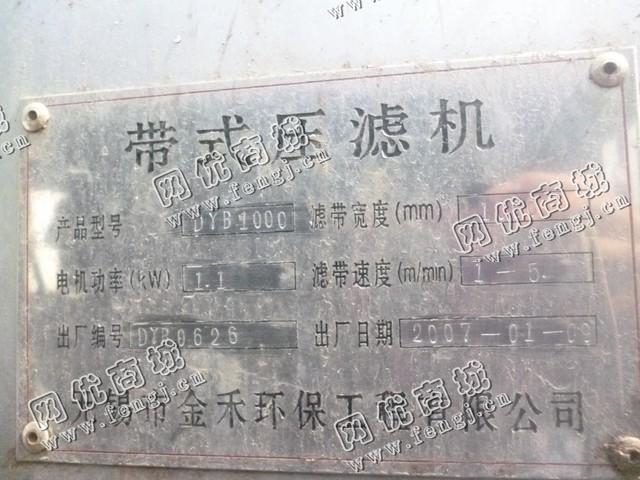 带式压滤机
产品型号 DYB1000 滤带宽度(mm)
电机功率(kW) 1.1 滤带速度(m/min) 1-5
出厂编号 DYB0626 出厂日期 2007-01-09
无锡市金禾环保工程有限公司
网优商城
www.fengj.cn
网优商城
www.fengj.cn
网优商城
www.fengj.cn
网优商城
www.fengj.cn